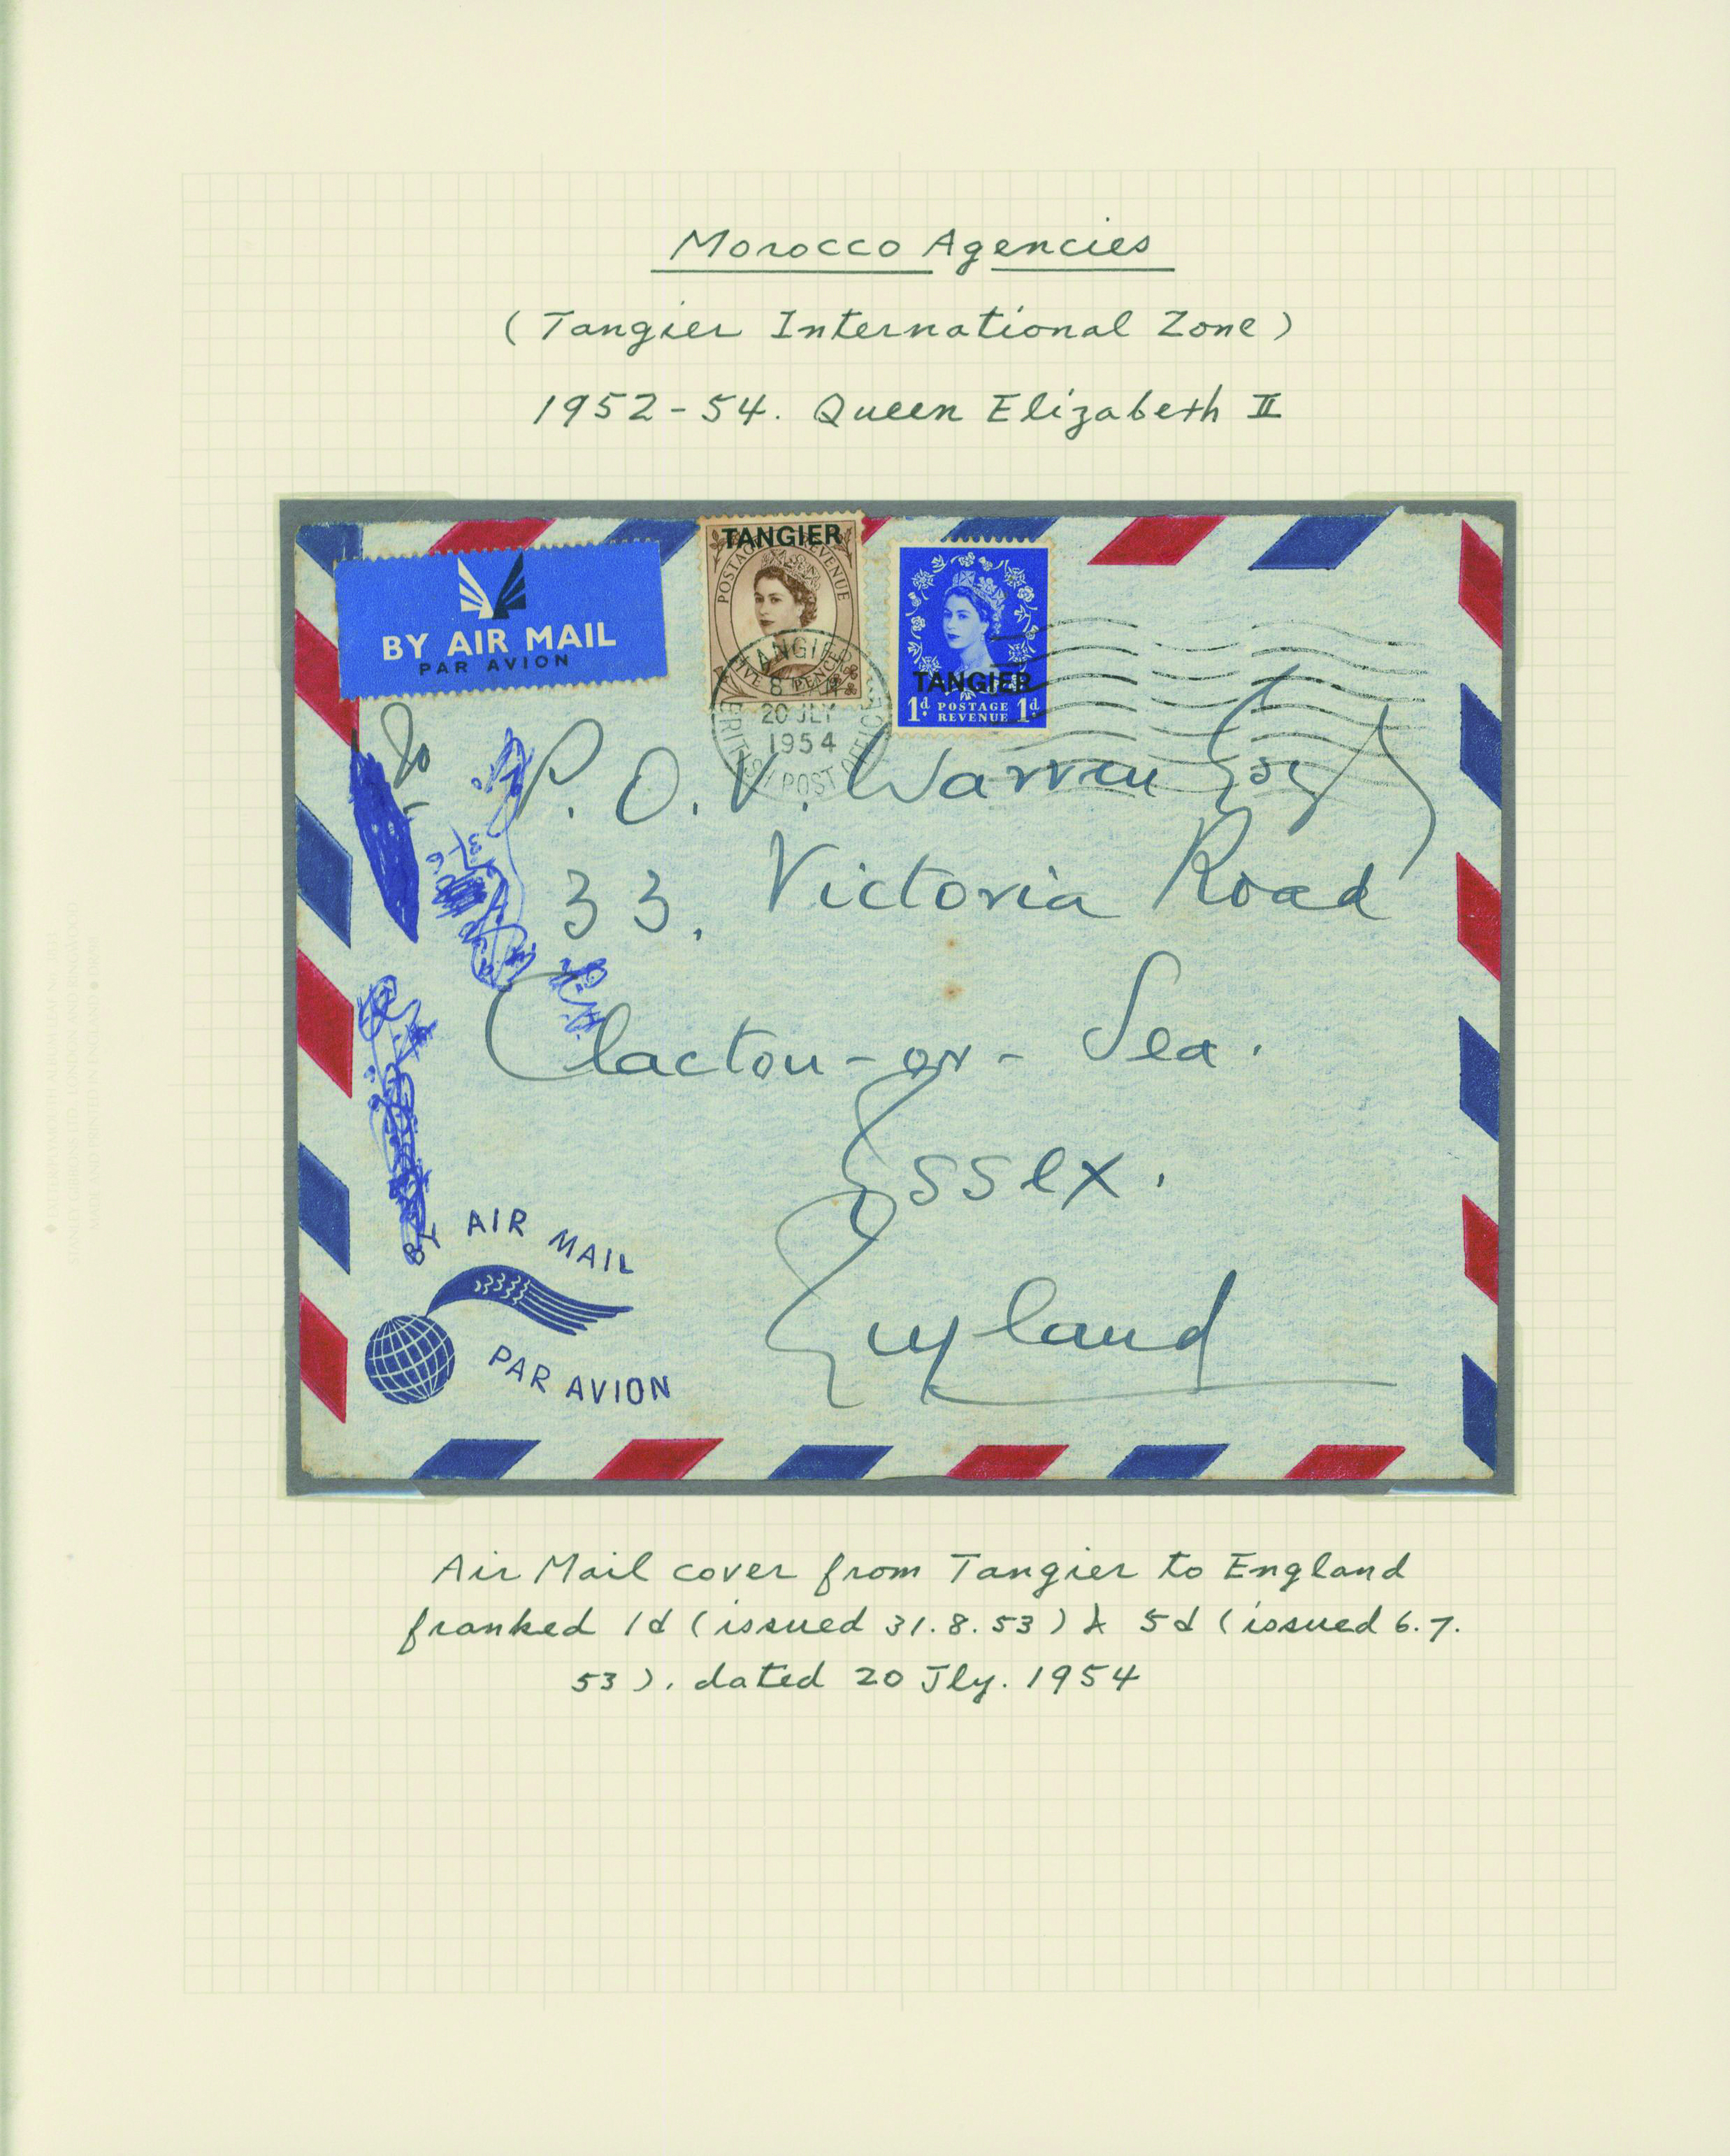 Morocco Agencies
(Tangier International Zone)
1952-54. Queen Elizabeth II
TANGIER
POSTAGE REVENUE
FIVE PENCE
TANGIER
1d POSTAGE REVENUE 1d
BY AIR MAIL
PAR AVION
TANGIER
8
20 JLY
1954
BRITISH POST OFFICE
To
P. O. V. Warren Esq
33, Victoria Road
Clacton-on-Sea.
Essex.
England
BY AIR MAIL
PAR AVION
Air Mail cover from Tangier to England
franked 1d (issued 31.8.53) & 5d (issued 6.7.
53). dated 20 Jly. 1954